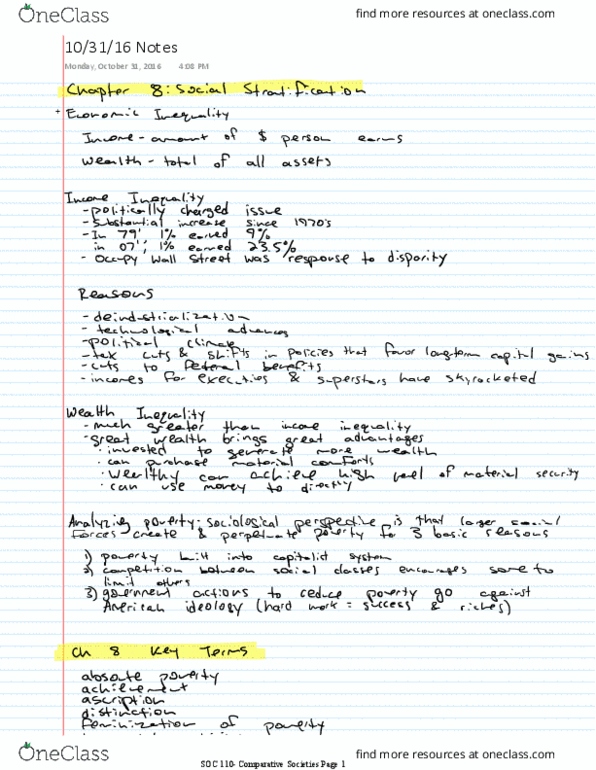 OneClass
find more resources at oneclass.com
10/31/16 Notes
Monday, October 31, 2016 4:08 PM
Chapter 8: Social Stratification
Economic Inequality
Income - amount of $ person earns
wealth - total of all assets
Income Inequality
- politically charged issue
- Substantial increase since 1970's
- In 79' 1% earned 9%
in 07'; 1% earned 23.5%
- Occupy Wall Street was response to disparity
Reasons
- deindustrialization
- technological advances
- political climate
- tax cuts & shifts in policies that favor long-term capital gains
- cuts to federal benefits
- incomes for executives & superstars have skyrocketed
Wealth Inequality
- much greater than income inequality
- great wealth brings great advantages
· invested to generate more wealth
· can purchase material comforts
· wealthy can achieve high level of material security
· can use money to directly
Analyzing poverty: sociological perspective is that larger social
forces create & perpetuate poverty for 3 basic reasons
1) poverty built into capitalist system
2) competition between social classes encourages some to
limit others
3) government actions to reduce poverty go against
American ideology (hard work = success & riches)
Ch 8 Key Terms
absolute poverty
achievement
ascription
distinction
feminization of poverty
SOC 110- Comparative Societies Page 1
OneClass
find more resources at oneclass.com